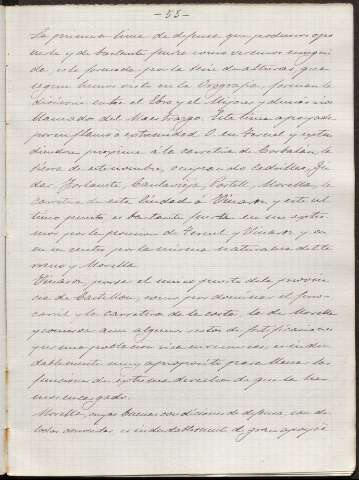 -58-
La primera linea de defensa que podemos opo-
nerle y de bastante fuerza como veremos enseguí-
da, está formada por la série de alturas que
segun hemos visto en la Orografía, forman la
divisoria entre el Ebro y el Mijares y demas rios
llamados del Maestrazgo. Esta linea apoyada
por un flanco ó extremidad O. en Teruel y exten-
diendose proxima á la carretera de Corbalan, la
sierra de este nombre, ocupando Cedrillas, Gu-
dar, Fortanete, Cantavieja, Portell, Morella, la
carretera de esta Ciudad á Vinaroz y este ul-
timo punto, es bastante fuerte en sus extre-
mos por la posicion de Teruel y Vinaroz y
en su centro por la misma naturaleza del te-
rreno y Morella.
Vinaroz, por ser el unico puerto de la provin-
cia de Castellon, como por dominar el ferro-
carril y la carretera de la costa, la de Morella
y conservar aun algunos restos de fortificaciones
y ser una poblacion rica en recursos, es indu-
dablemente muy apropósito para llenar las
funciones de extrema derecha de que la he-
mos encargado.
Morella, cuyas buenas condiciones de defensa, son de
todos conocidas, es indudablemente de gran apoyo